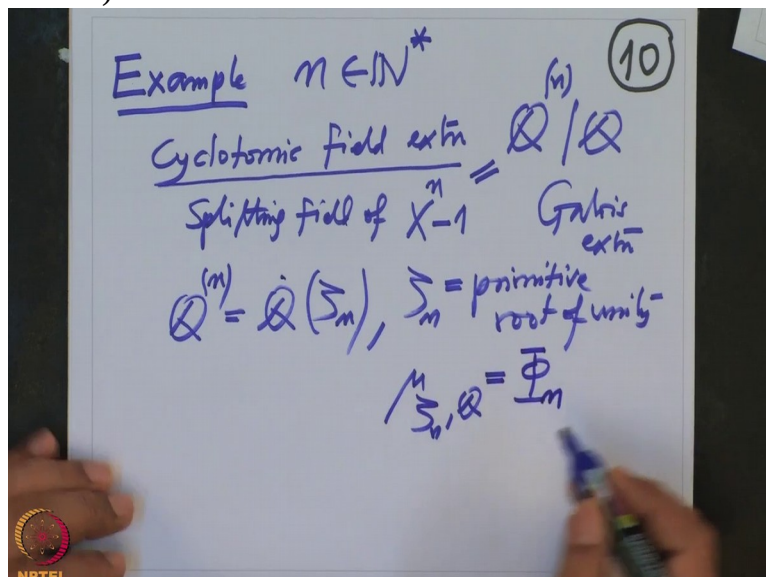 Example n ∈ ℕ*
10
Cyclotomic field extn = ℚ⁽ⁿ⁾ | ℚ
Splitting field of Xⁿ-1 Galois extn
ℚ⁽ⁿ⁾ = ℚ(ζₙ), ζₙ = primitive root of unity
μ_ζₙ,ℚ = Φₙ
NPTEL